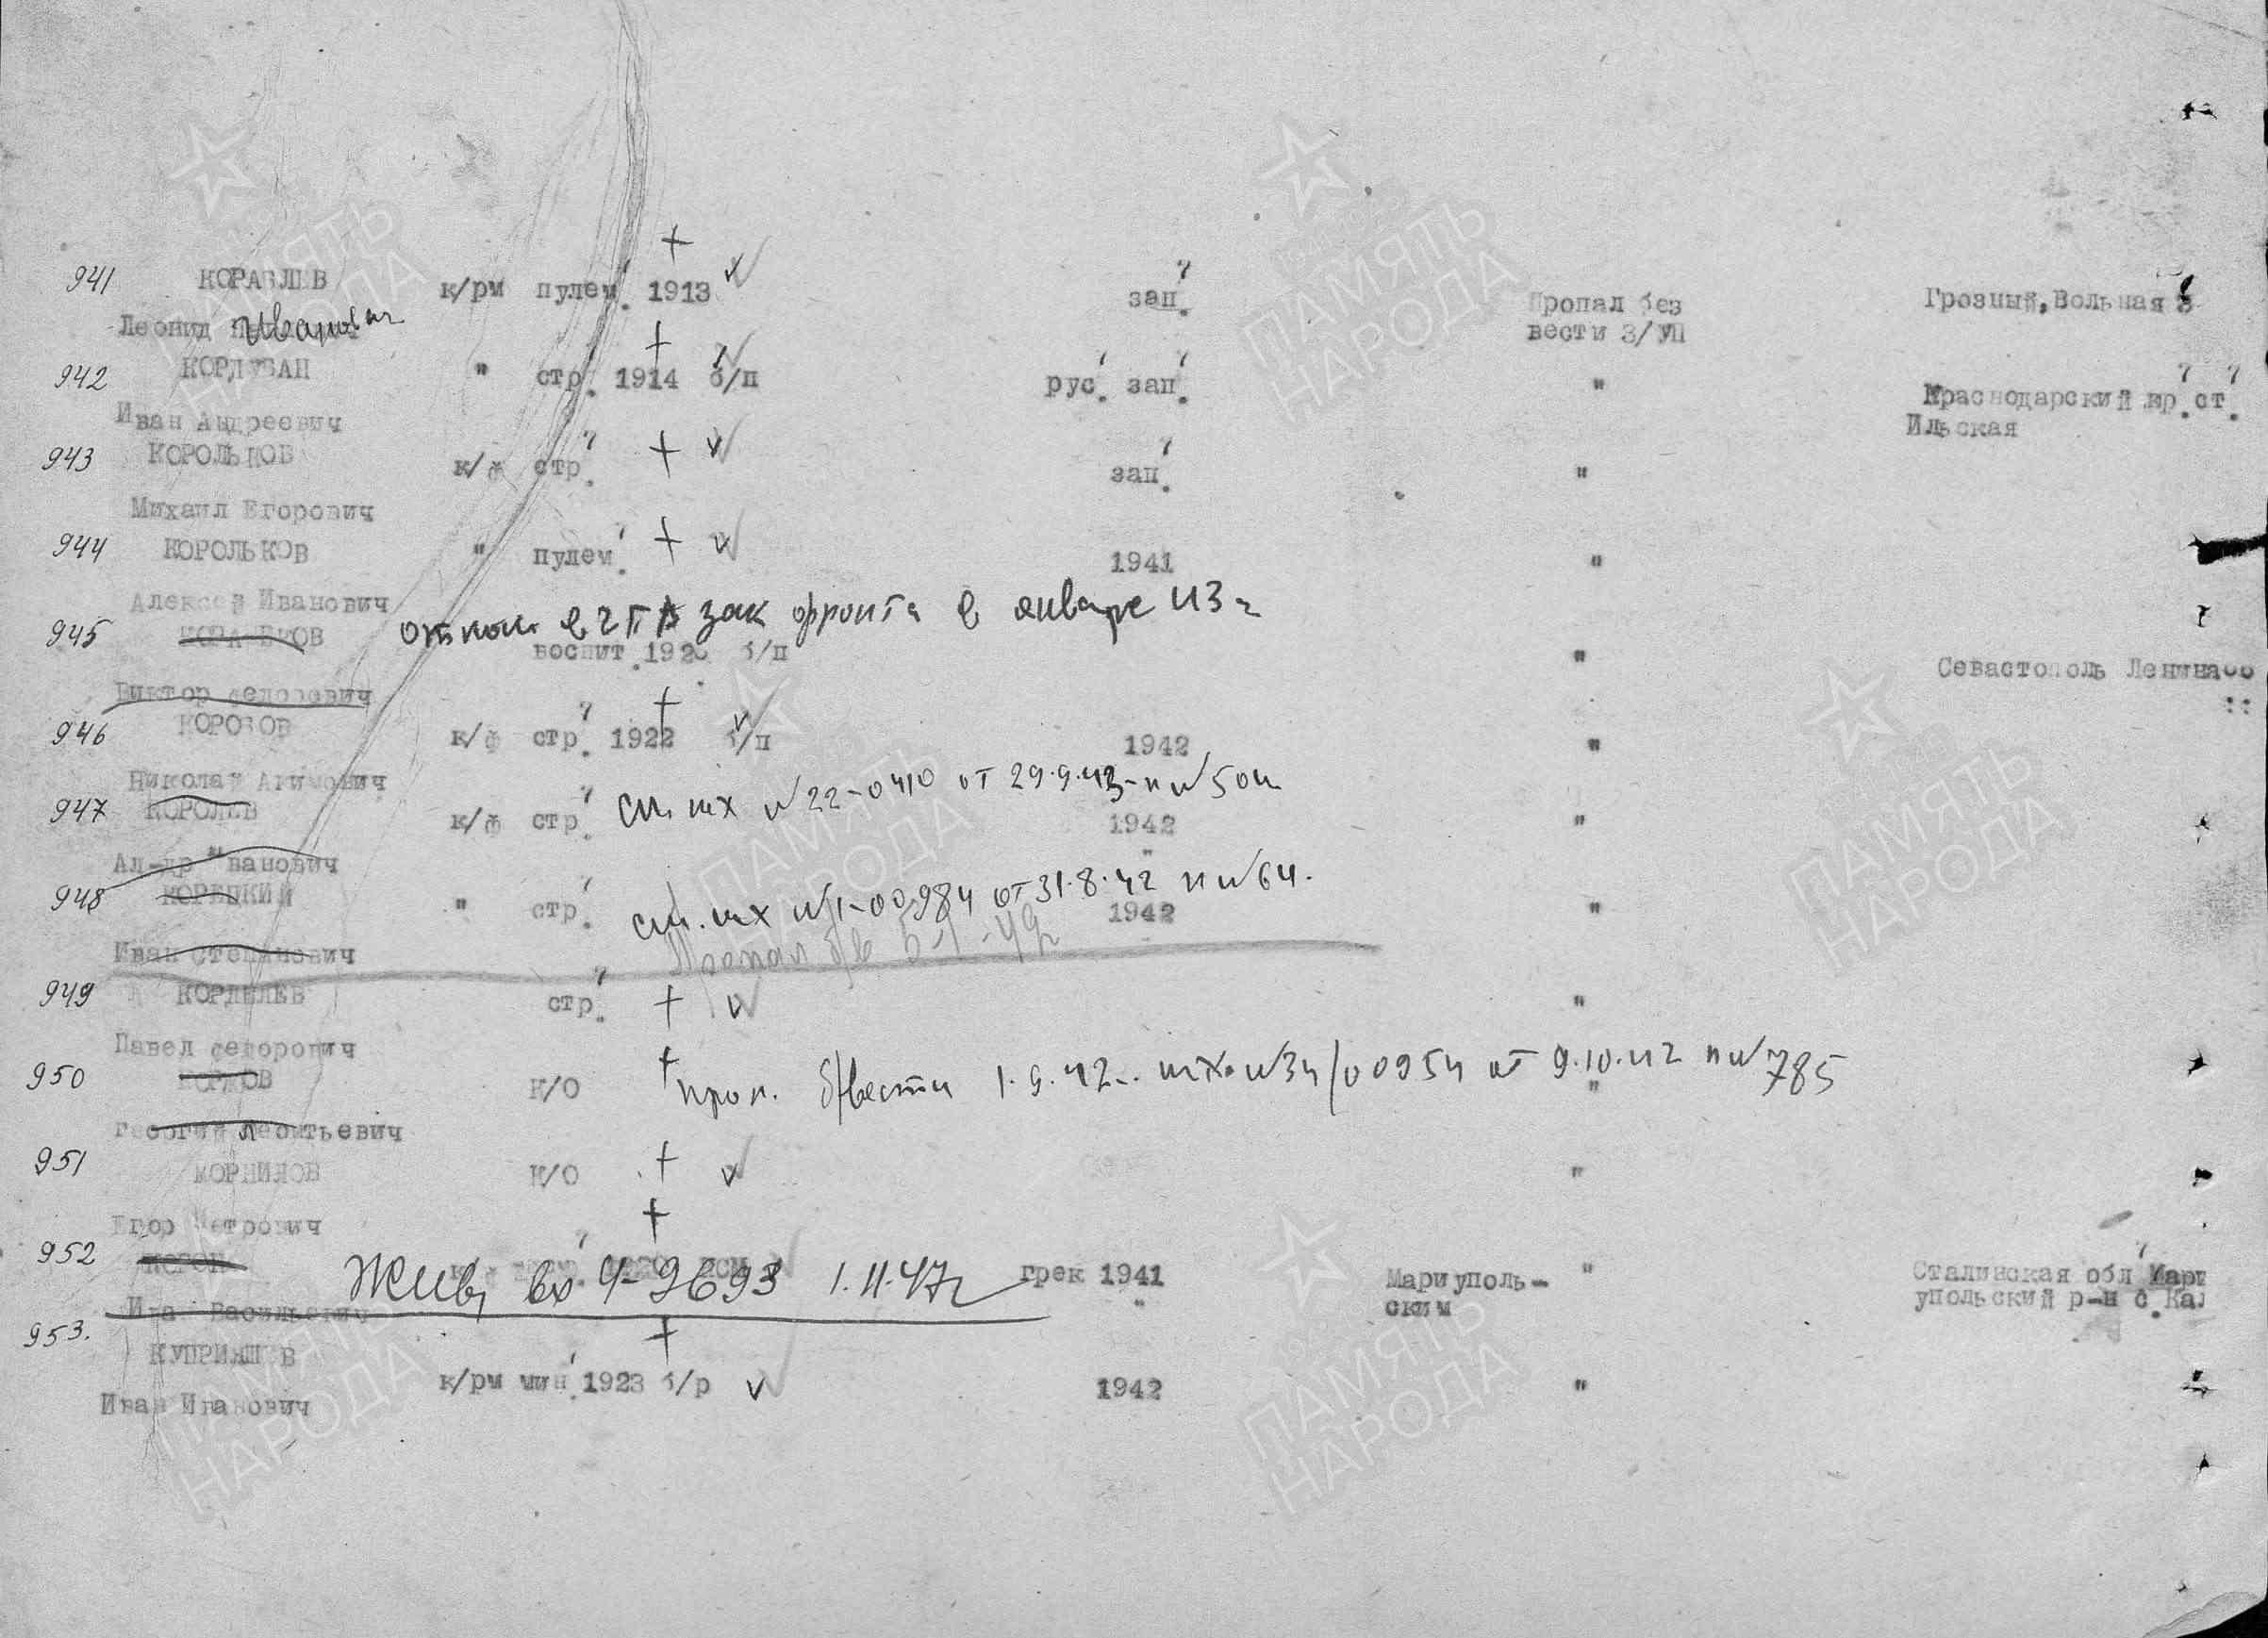 941 КОРАБЛЕВ к/рм пулем. 1913 зап. Пропал без Грозный, Вольная 3
Леонид Иванович вести 3/УП
942 КОРДУБАН " стр. 1914 б/п рус. зап. " Краснодарский кр. ст.
Иван Андреевич Ильская
943 КОРОЛЬКОВ к/ф стр. зап. "
Михаил Егорович
944 КОРОЛЬКОВ " пулем. 1941 "
Алексей Иванович
945 в январе 43 г
воспит. б/п " Севастополь
Виктор Федорович
946 КОРОБОВ к/ф стр. 1922 б/п 1942 "
Николай Акимович
947 КОРОЛЕВ к/ф стр. см. т № 22-0410 от 29.9.43 п № 504
1942 "
Ал-др Иванович
948 КОРЕЦКИЙ " стр. см. № 1-00984 от 31.8.42 п № 64.
1942 "
Иван Степанович Пропал б/в
949 стр. "
Павел Федорович
950 К/О проп. б/вести 1.9.42 № 34/00954 от 9.10.42 п № 785
"
Георгий Леонтьевич
951 КОРНИЛОВ К/О "
Егор Петрович
952 Жив, вх 4-9693 1.11.47г грек 1941 Мариуполь- " Сталинская обл Мари
Васильевич " ским упольский р-н с. Кал
953. КУПРИЯШЕВ
к/рм мин. 1923 б/р 1942 "
Иван Иванович
ПАМЯТЬ
НАРОДА